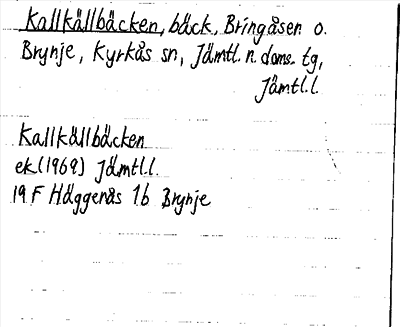 Kallkällbäcken, bäck, Bringåsen o.
Brynje, Kyrkås sn, Jämtl. n. doms. tg,
Jämtl.l.
Kallkällbäcken
ek (1969) Jämtl.l.
19 F Häggenås 1b Brynje